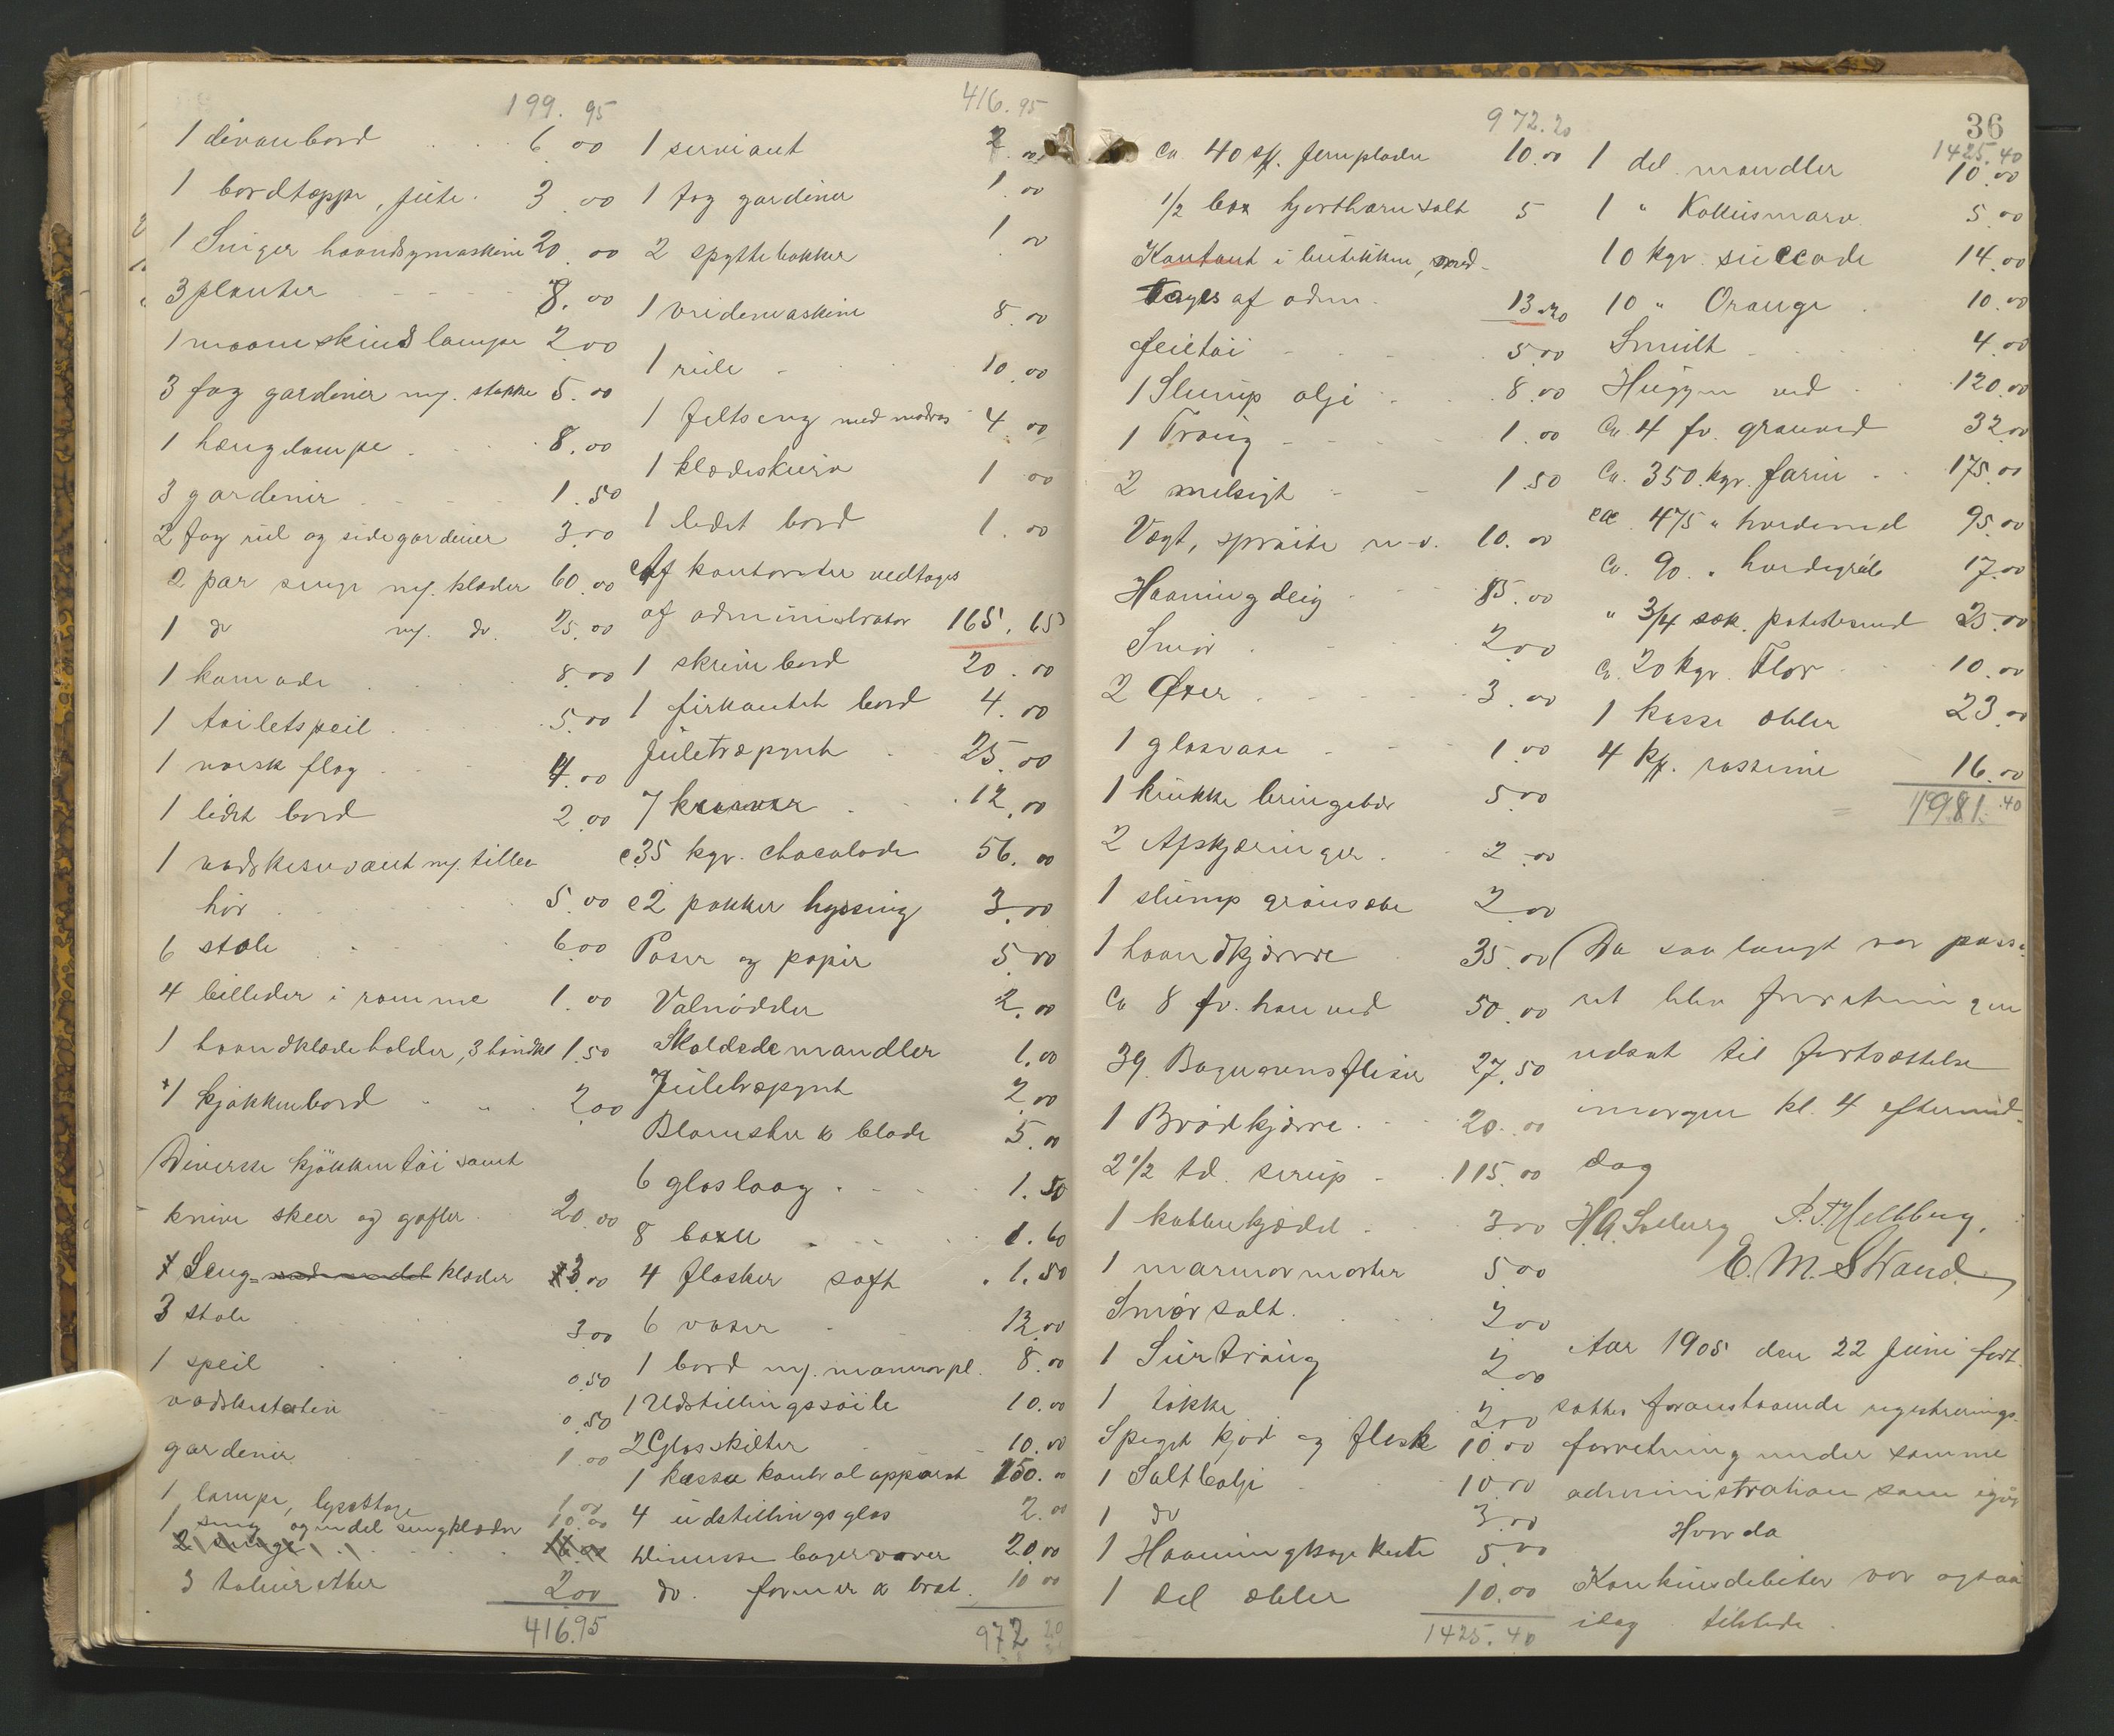 199.95
1 divanbord 6.00
1 bordtæppe, jute. 3.00
1 Singer haandsymaskine 20.00
3 planter 8.00
1 maaneskinslampe 2.00
3 fag gardiner m/. stokke 5.00
1 hængelampe 8.00
3 gardiner 1.50
2 fag rul og sidegardiner 3.00
2 par senge m/. klæder 60.00
1 do m/. do. 25.00
1 komode 8.00
1 toiletspeil 5.00
1 norsk flag 4.00
1 lidet bord 2.00
1 vadskeservant m/. tilbe-
hör 5.00
6 stole 6.00
4 billeder i ramme 1.00
1 haandklædeholder, 3 håndkl 1.50
1 kjøkkenbord 2.00
Diverse kjökkentöi samt
knive skeer og gafler 20.00
Seng- klæder 3.00
3 stole 3.00
1 speil 0.50
vadskestativ 0.50
gardiner 1.00
1 lampe, lysestage 1.00
1 seng og en del sengklæder 10.00
2 senge
3 taburetter 2.00
416.95
416.95
1 serviant 2.00
1 fag gardiner 1.00
2 spyttebakker 1.00
1 vridemaskine 8.00
1 rulle 10.00
1 feltseng med madras 4.00
1 klædeskurv 1.00
1 lidet bord 1.00
Af kontanter vedtages
af administrator 165.65
1 skrivebord 20.00
1 firkantet bord 4.00
Juletræpynt 25.00
7 kranser 12.00
c 35 kgr. chocolade 56.00
c 2 pakker hyssing 3.00
Poser og papir 5.00
Valnödder 2.00
Skoldede mandler 1.00
Juletræpynt 2.00
Blomster & blade 5.00
6 glaslaag 1.50
8 boxer 1.60
4 flasker saft 1.50
6 vaser 12.00
1 bord m/. marmorpl. 8.00
1 Udstillingssöile 10.00
2 Glasskilter 10.00
1 kassa kontrolapparat 150.00
4 udstillingsglas 2.00
Diverse bagervarer 20.00
do. former & bræt. 10.00
972.20
972.20
Ca 40 st. jernplader 10.00
1/2 box hjorthornsalt 5
Kontant i butikken, med-
tages af adm. 13.20
Feietöi 5.00
1 Slump olje 8.00
1 Traug 1.00
2 melsigt 1.50
Vægt, spröite m-v. 10.00
Haaningdeig 85.00
Smör 2.00
2 Øxer 3.00
1 glasvase 1.00
1 krukke bringebær 5.00
2 Afskjæringer 2.00
1 slump grönsæbe 2.00
1 haandkjærre 35.00
Ca 8 fv. han ved 50.00
39 Bagerovnsfliser 27.50
1 Brödkjærre 20.00
2 1/2 td. sirup 115.00
1 kobberkjedel 3.00
1 marmormorter 5.00
Smör salt. 2.00
1 Surtraug 2.00
1 bøkke 2.00
Speget kjöd og flesk 10.00
1 Saltbalje 10.00
1 do 3.00
1 Haaningkagekiste 5.00
1 del æbler 10.00
1425.40
36
1425.40
1 del mandler 10.00
1 " Kokusmarv 5.00
10 kgr. succade 14.00
10 " Orange 10.00
Smult 4.00
Huggen ved 120.00
Ca. 4 fv. granved 32.00
Ca. 350. kgr. farin 175.00
ca. 475 " hvedemel 95.00
Ca. 90. " hvedegröb 17.00
" 3/4 sæk. potetesmel 25.00
Ca. 20 kgr. Flor 10.00
1 kasse æbler 23.00
4 kg. rossiner 16.00
1981.40
Da saa langt var passe-
ret blev forretningen
udsat til fortsættelse
imorgen kl. 4 eftermid-
dag
H.A. Solberg P.T. Hellberg.
E. M. Strand
Aar 1905 den 22 Juni fort-
sattes foranstaaende registrerings-
forretning under samme
administration som igår
Hvorda
Konkursdebitor var ogsaa
idag tilstede.